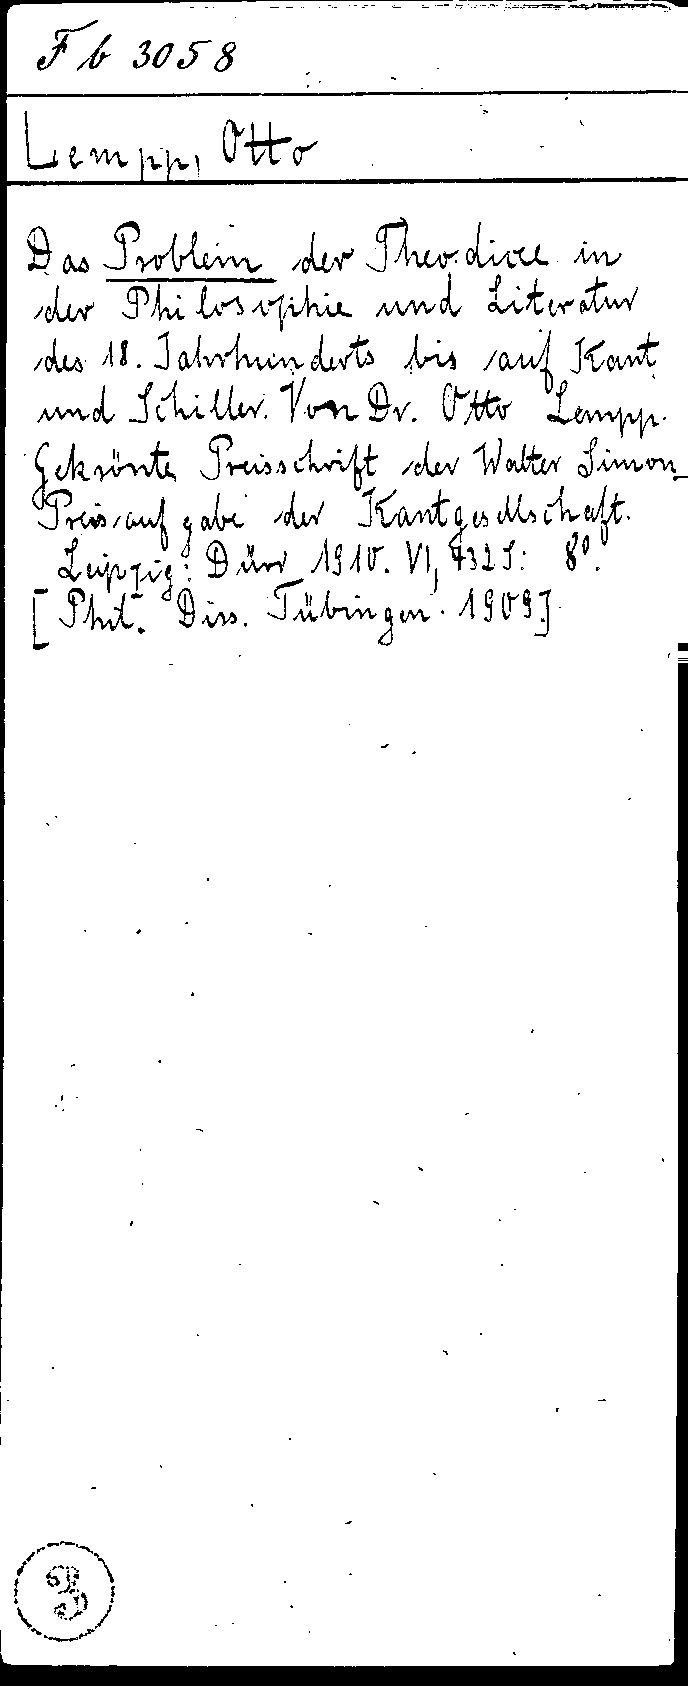 F b 3058
Lempp, Otto
Das Problem der Theodicee in
der Philosophie und Literatur
des 18. Jahrhunderts bis auf Kant
und Schiller. Von Dr. Otto Lempp.
Gekrönte Preisschrift der Walter Simon-
Preisaufgabe der Kantgesellschaft.
Leipzig: Dürr 1910. VI, 432 S. 8°.
[Phil. Diss. Tübingen. 1909.]
3